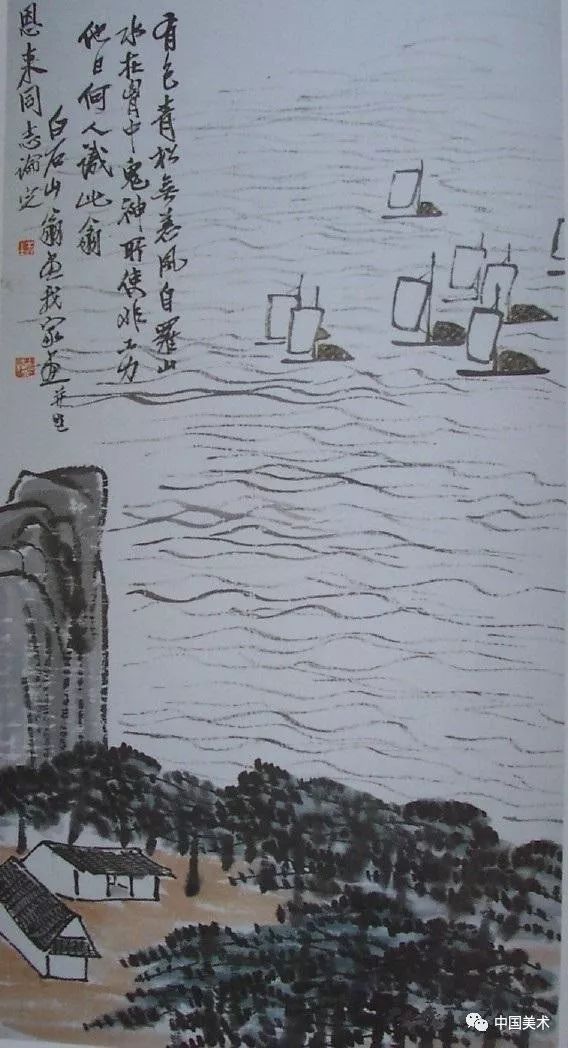 有色青松無恙風自羅山
水在胷中鬼神所使非工力
他日何人識此翁
白石山翁畫我家畫并題
恩来同志論定
中国美术